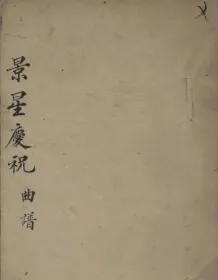 景星慶祝曲譜